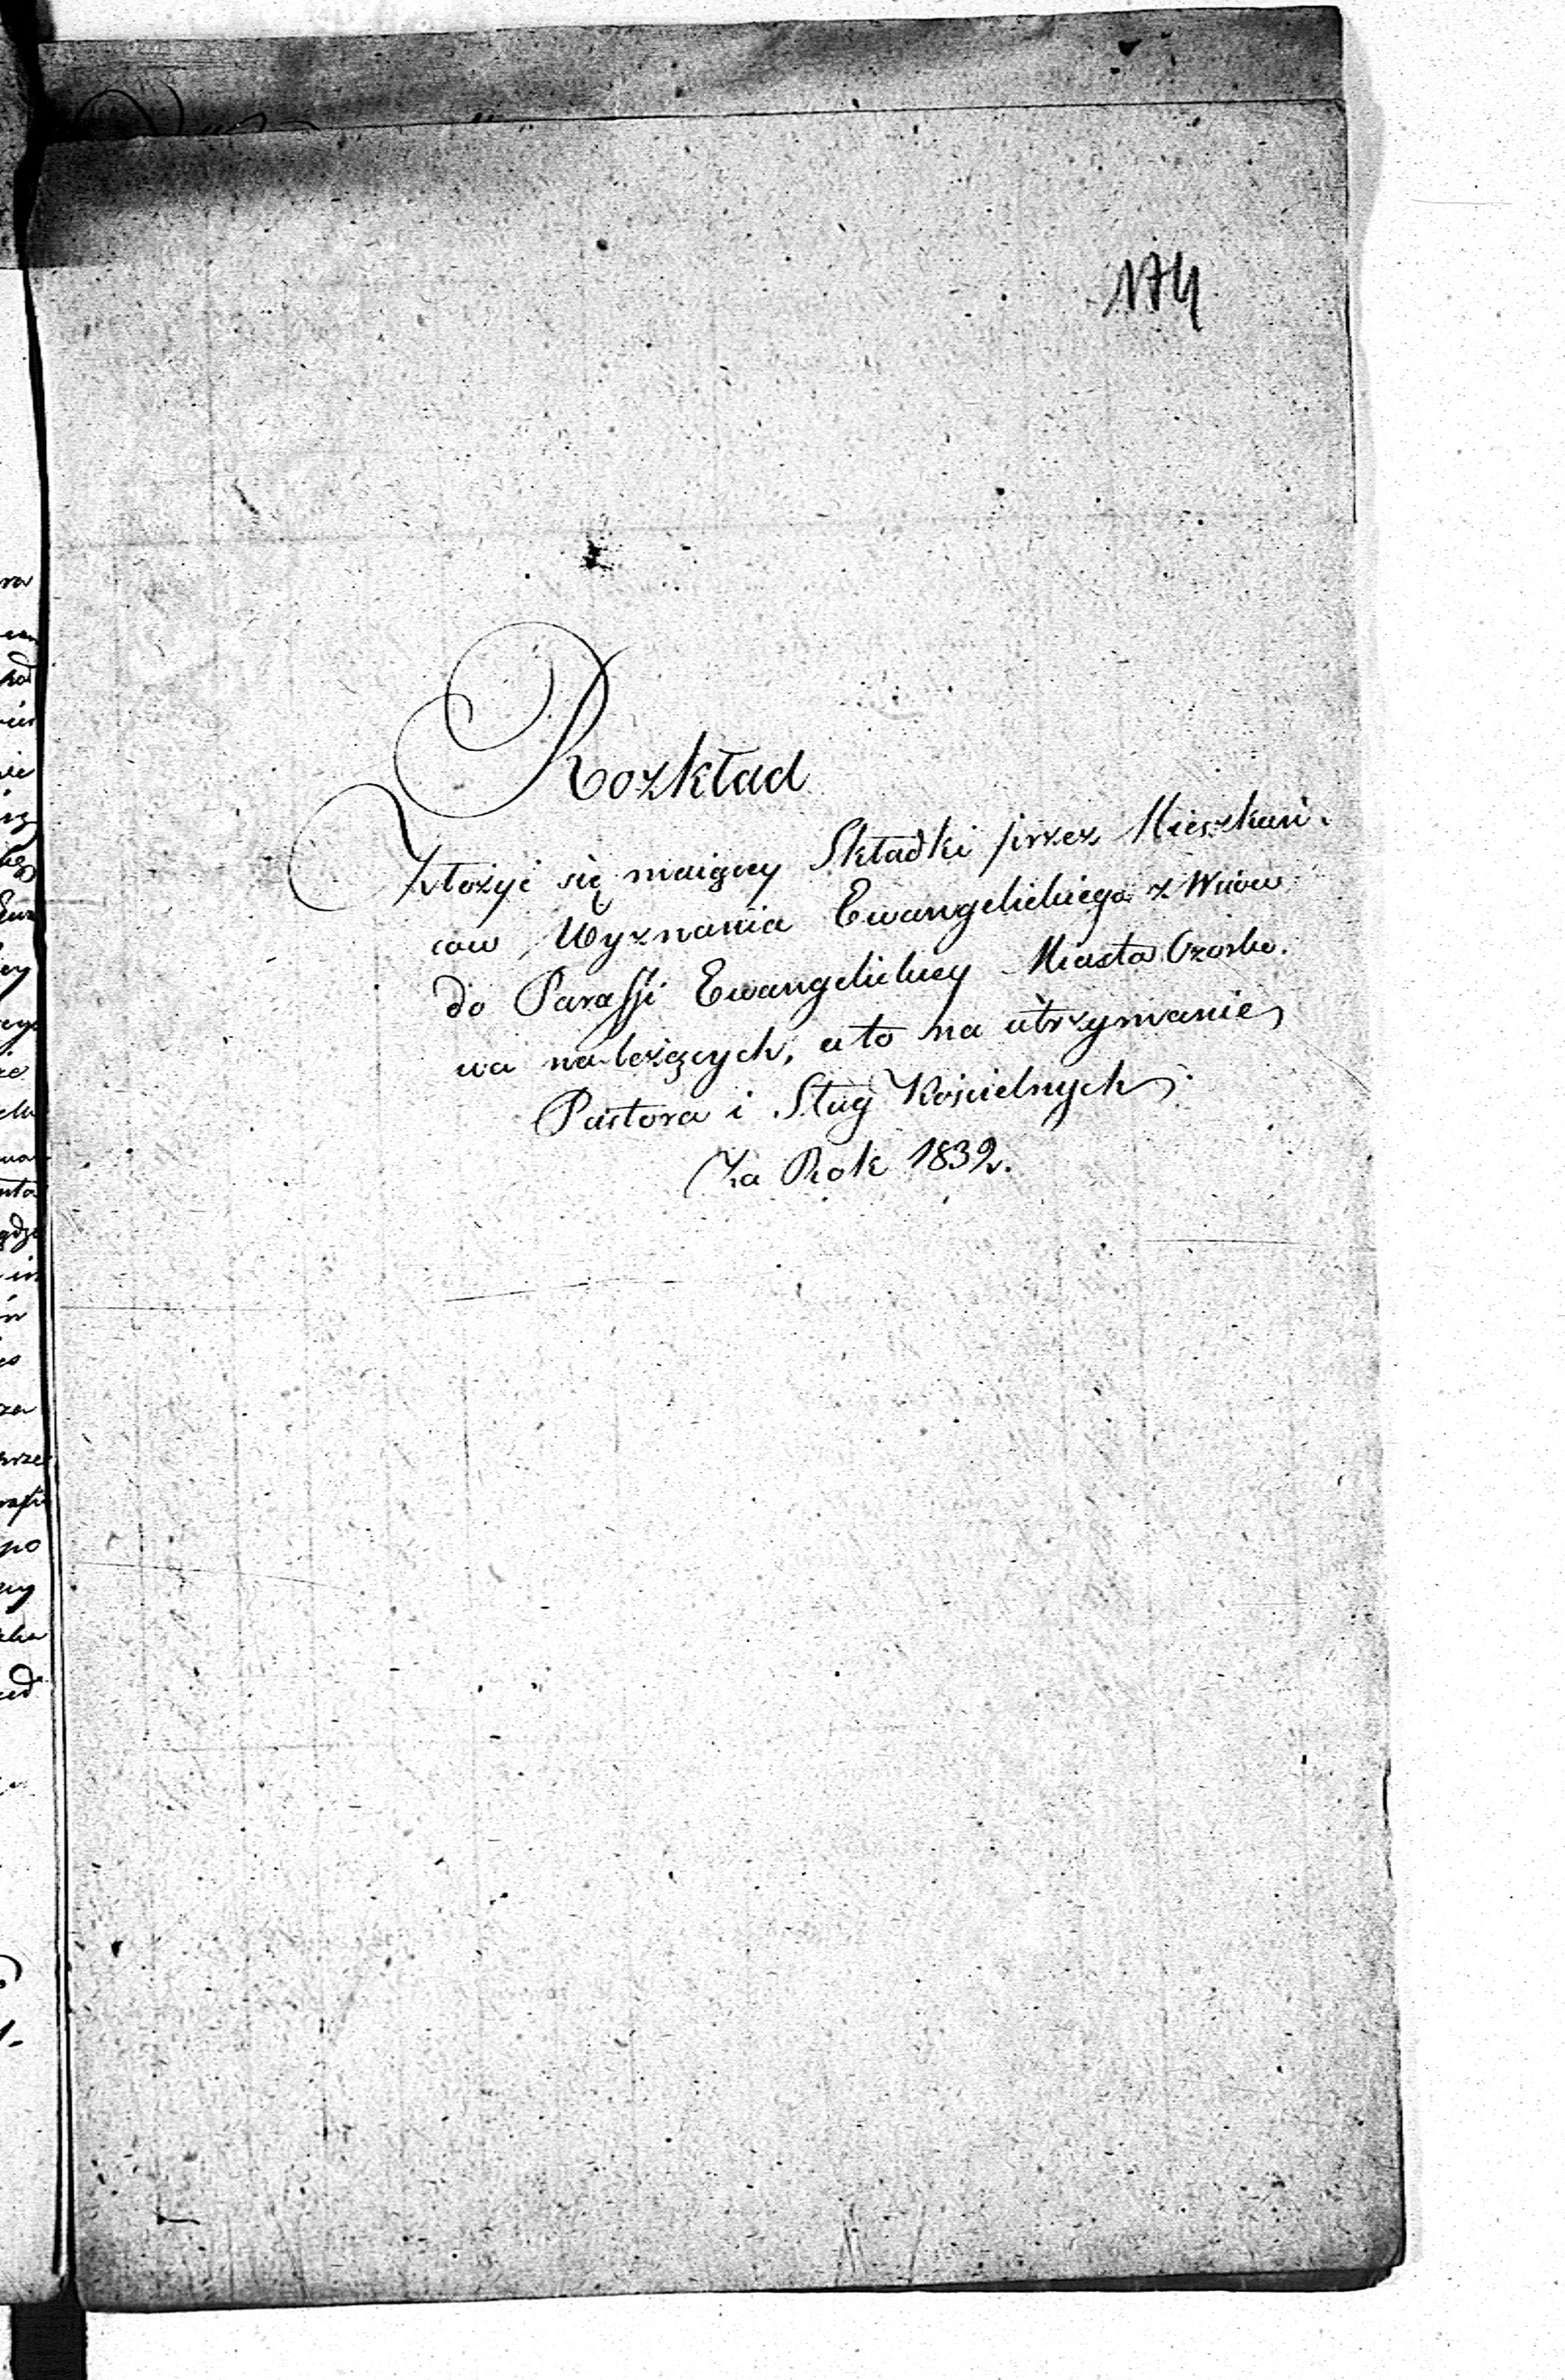 174
Rozkład
Złożyć się maiącey Składki przez Mieszkań-
ców Wyznania Ewangelickiego z Wsiów
do Paraffii Ewangelickiey Miasta Ozorko-
wa należących, a to na utrzymanie
Pastora i Sług Kościelnych
Za Rok 1839.